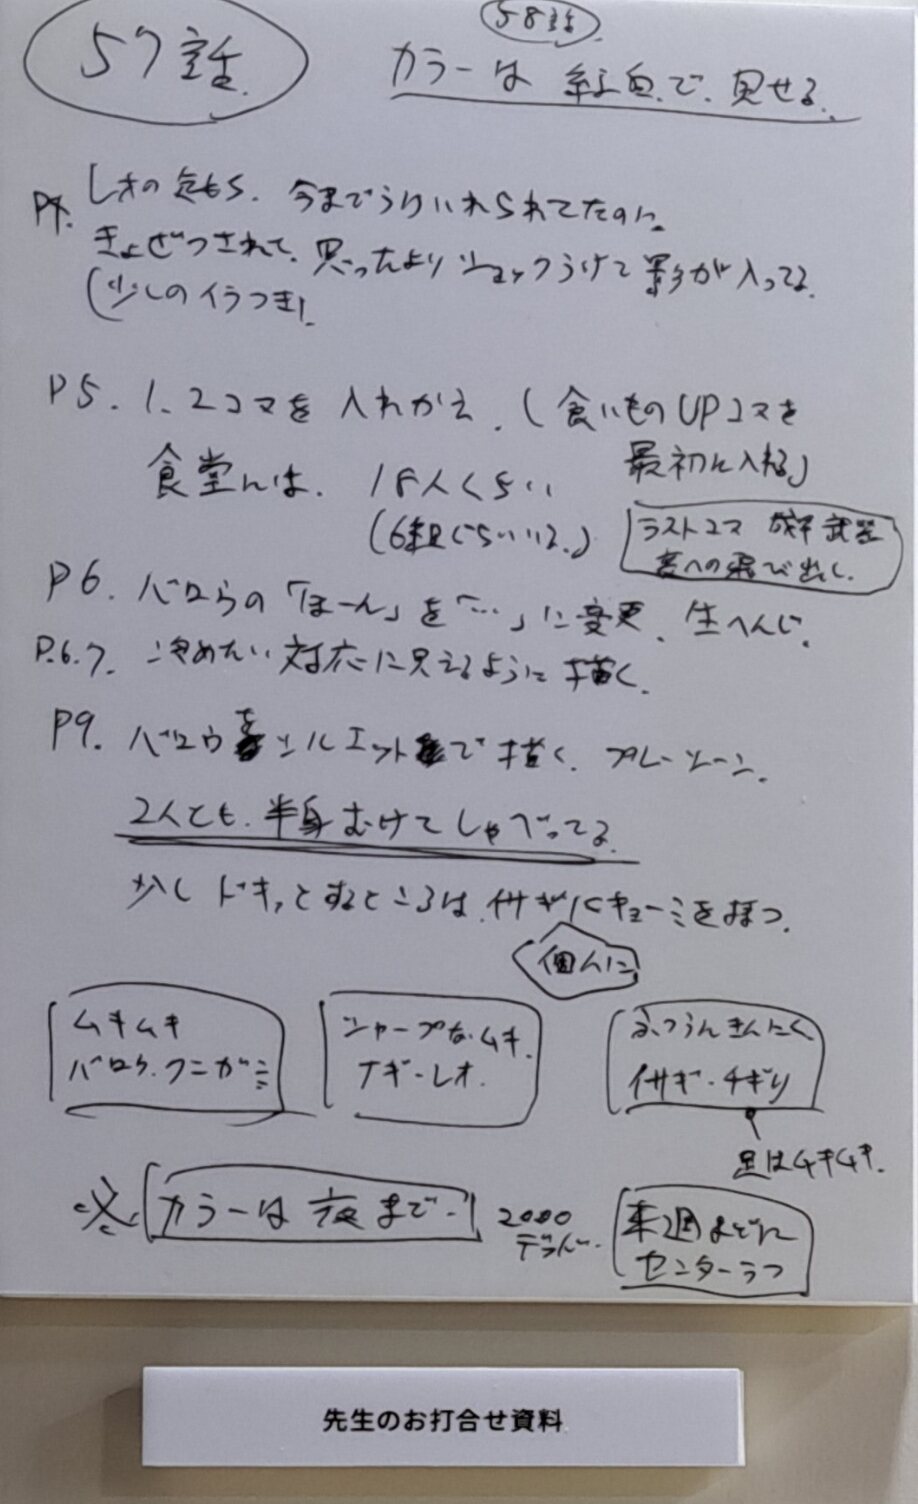 57話
58話
カラーは 紅白で、見せる。
P4. レオの気もち、今までうけいれられてたのに
きょぜつされて、思ったよりショックうけて影が入ってる。
(少しのイラつき)
P5. 1、2コマを入れかえ。(食いものUPコマを
最初に入れる)
食堂には、18人くらい
(6組ぐらいいる。)
ラストコマ 武器
への飛び出し。
P6. バロウの「ほーん」を「…」に変更。生へんじ。
P.6.7. 冷めたい対応に見えるように描く。
P9. バロウをシルエットで描く。プレーシーン。
2人とも、半身むけてしゃべってる。
少しドキッとするところは、イサギにキョーミを持つ。
個人に
ムキムキ
バロウ、クニガミ
シャープなムキ。
ナギ・レオ。
ふつうんきんにく
イサギ・チギリ
足はムキムキ。
※ カラーは夜まで。
2000
デラパー。
来週までに
センターラフ
先生のお打合せ資料